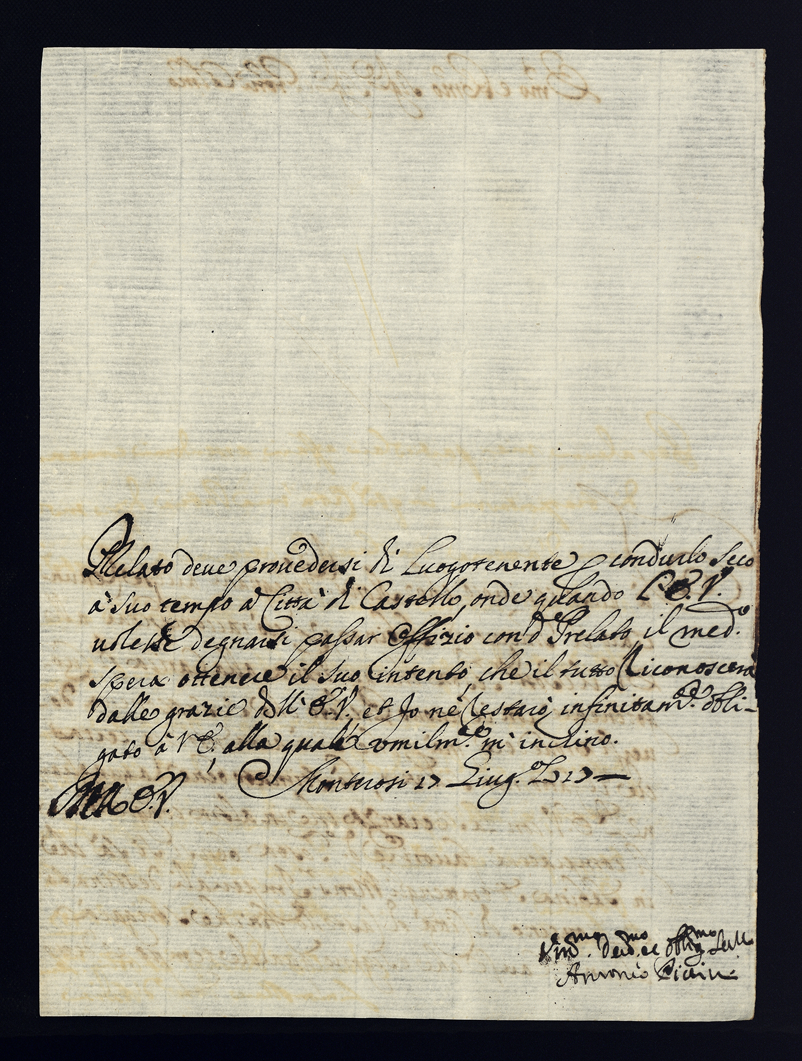 Prelato deve provedersi di Luogotenente p condurlo seco
à suo tempo à Città di Castello, onde quando l'E.V.
volesse degnarsi passar Offizio con d.º Prelato il med.º
spera ottenere il suo intento, che il tutto riconoscerà
dalle grazie dell' E.V., et Io nè restarò infinitam.te obli-
gato à V E, alla quale umilm.te m' inclino.
Monterosi 17 Giug.
E.V.
Um.mo Dev.mo et Oblig.mo
Antonio